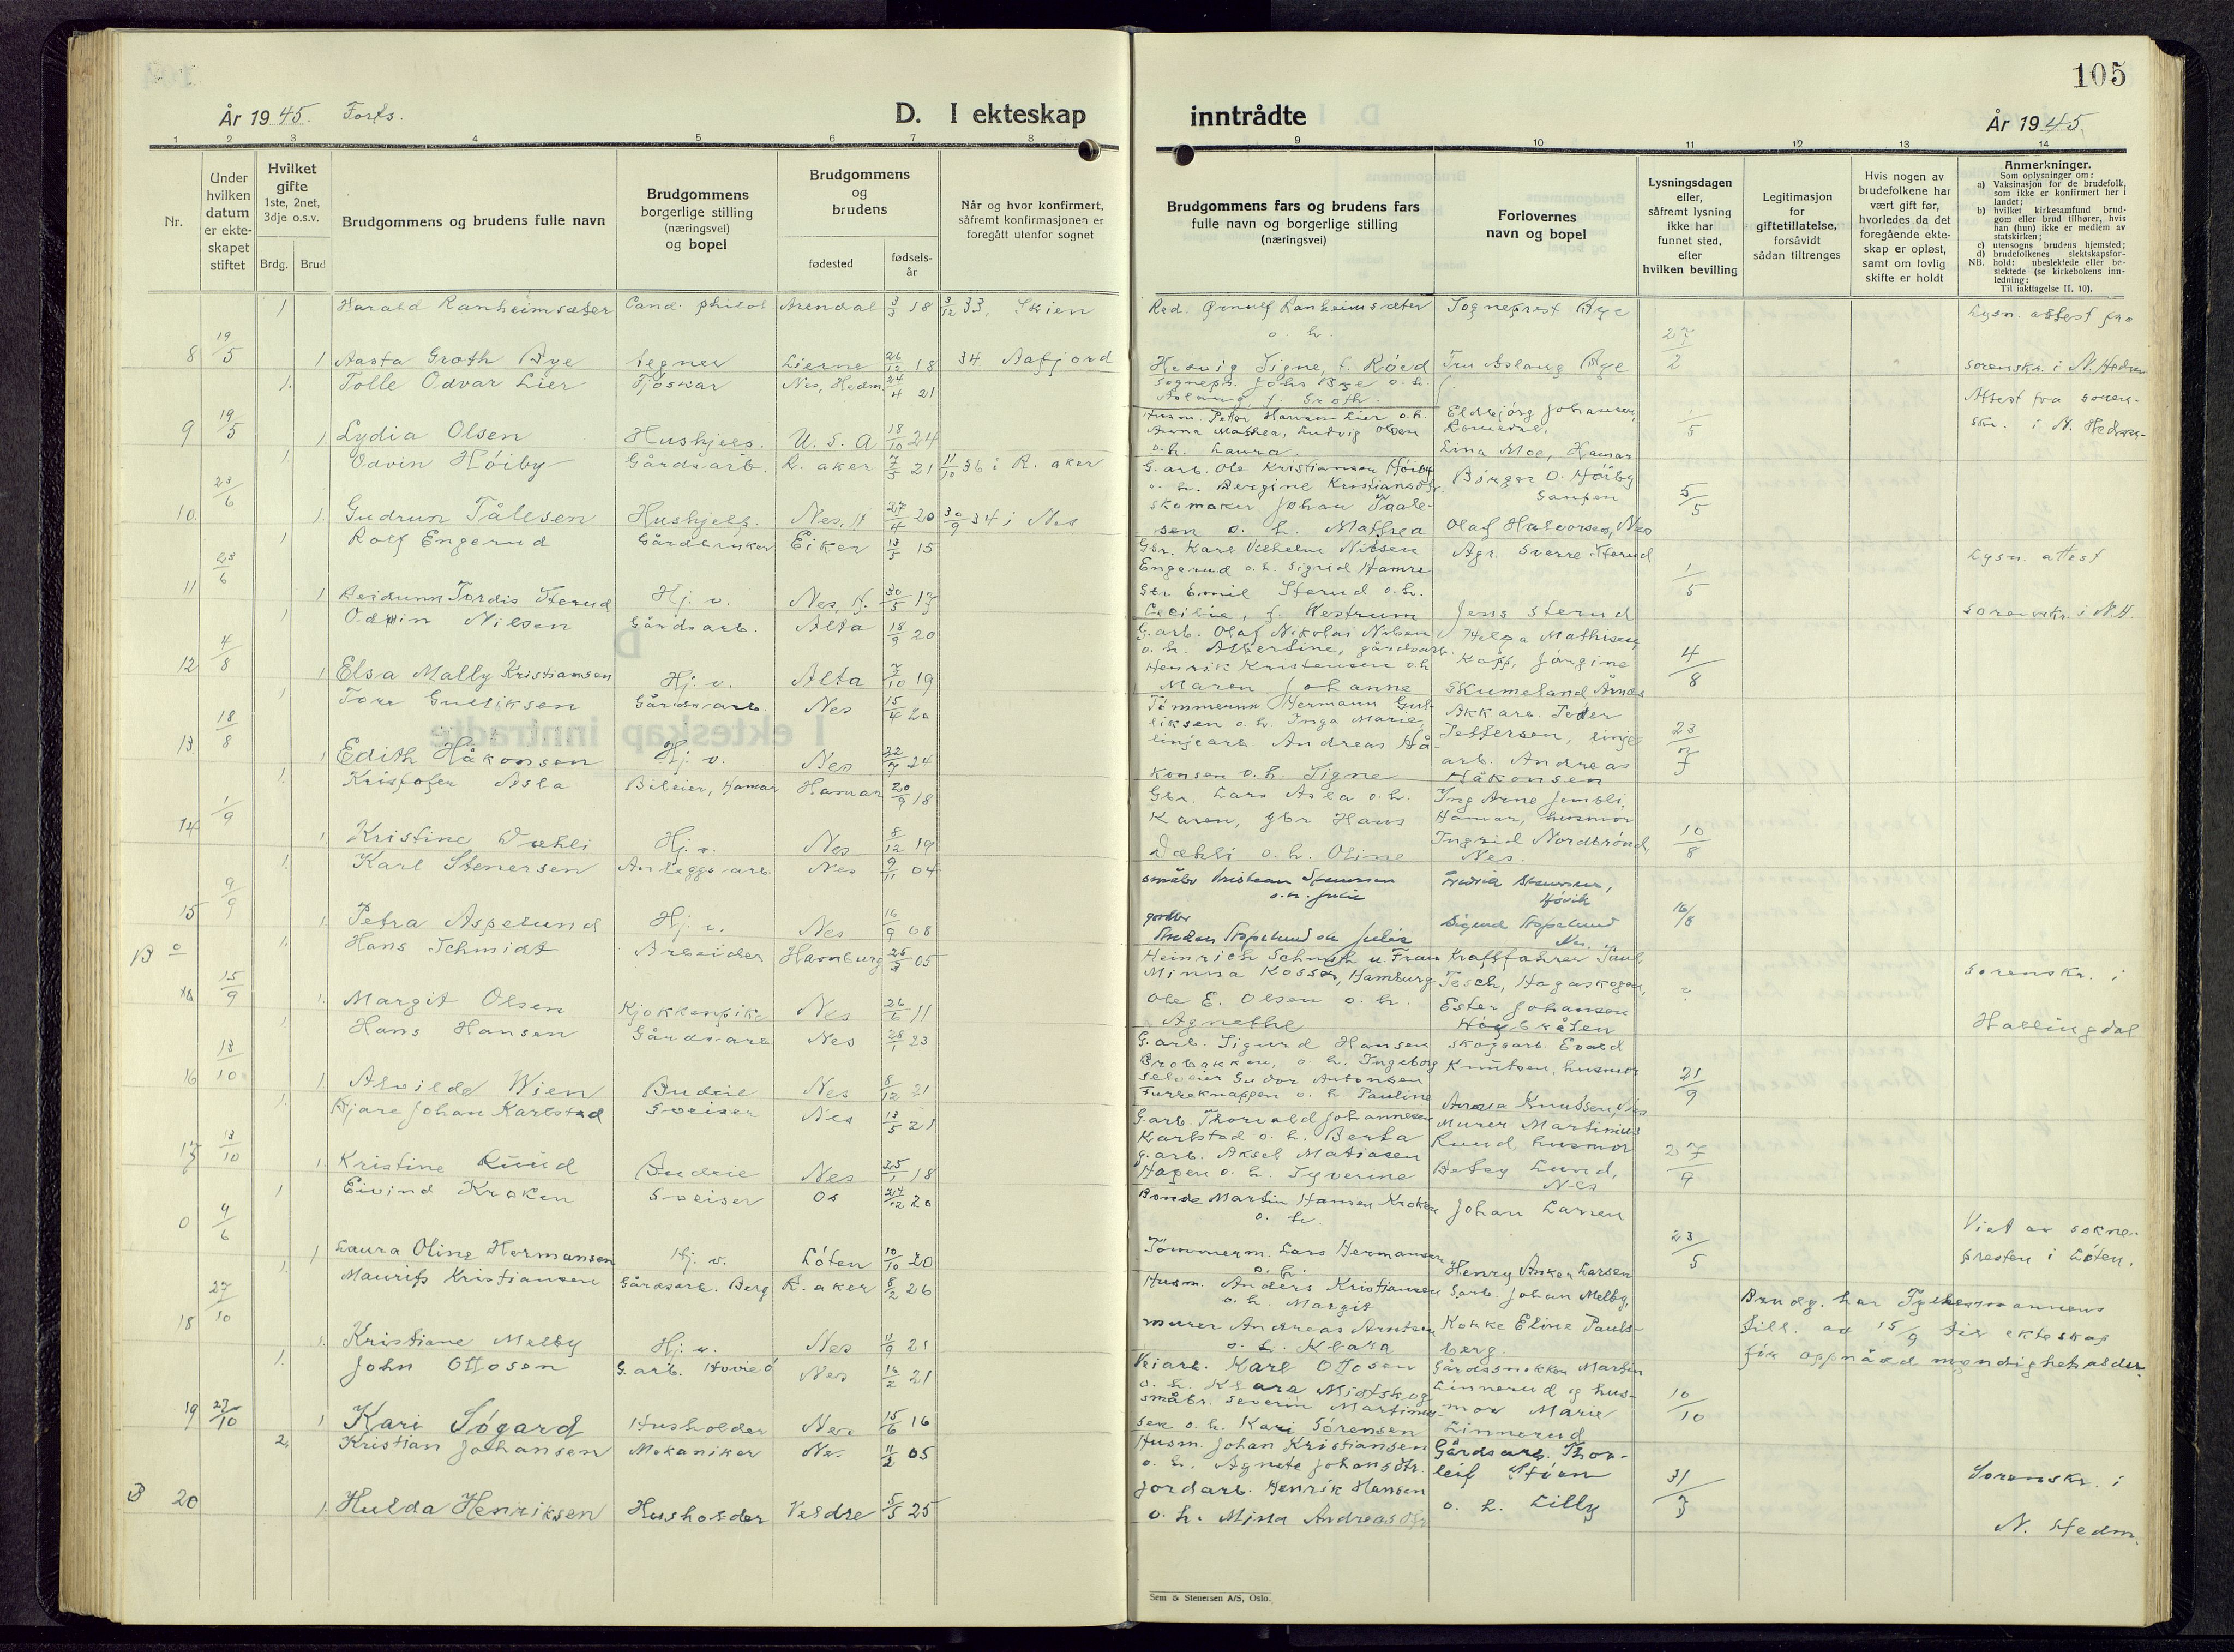 105
År 1945. Forts.
D. I ekteskap
inntrådte
År 1945.
1 2 3 4 5 6 7 8 9 10 11 12 13 14
Nr.
Under
hvilken
datum
er ekte-
skapet
stiftet
Hvilket
gifte
1ste, 2net,
3dje o.s.v.
Brdg. Brud
Brudgommens og brudens fulle navn
Brudgommens
borgerlige stilling
(næringsvei)
og bopel
Brudgommens
og
brudens
fødested
fødsels-
år
Når og hvor konfirmert,
såfremt konfirmasjonen er
foregått utenfor sognet
Brudgommens fars og brudens fars
fulle navn og borgerlige stilling
(næringsvei)
Forlovernes
navn og bopel
Lysningsdagen
eller,
såfremt lysning
ikke har
funnet sted,
efter
hvilken bevilling
Legitimasjon
for
giftetillatelse,
forsåvidt
sådan tiltrenges
Hvis nogen av
brudefolkene har
vært gift før,
hvorledes da det
foregående ekte-
skap er opløst,
samt om lovlig
skifte er holdt
Anmerkninger.
Som oplysninger om:
a) Vaksinasjon for de brudefolk,
som ikke er konfirmert her i
landet;
b) hvilket kirkesamfund brud-
gom eller brud tilhører, hvis
han (hun) ikke er medlem av
statskirken;
c) utensogns brudens hjemsted;
d) brudefolkenes slektskapsfor-
NB. hold: ubeslektede eller be-
slektede (se kirkebokens inn-
ledning:
Til iakttagelse II, 10).
1 Harald Ranheimsæter Cand. philol. Arendal 3/3 18 3/12 33, Skien
Red. Ørnulf Ranheimsæter Sogneprest Bye Lysn. attest fra
o. h.
8 19/5 1 Aasta Groth Bye tegner Lierne 26/12 18 34 Aafjord
Hedvig Signe, f. Röed Fru Aslaug Bye 27/2 sorenskr. i N. Hedm
1. Tolle Odvar Lier Fjöskar Nes, Hedm 24/4 21
sognepr. Johs Bye o. h.
Aslaug, f. Groth. Attest fra soren-
Husm. Peter Hansen Lier o.h. Eldbjörg Johansen,
9 19/5 1 Lydia Olsen Hushjelp. U. S. A 18/10 24
Anna Mathea, Ludvig Olsen Romedal, 1/5 skr. i N. Hedm-
o.h. Laura Lina Moe, Hamar
1 Odvin Höiby Gårdsarb. R. aker 7/5 21 11/10 36 i R. aker
G. arb. Ole Kristiansen Höiby Birger O. Höiby
o. h. Bergine Kristiansdtr. Gaupen
10. 23/6 1. Gudrun Tålesen Hushjelp. Nes, H 27/4 20 30/9 34 i Nes
skomaker Johan Taale- 5/5
sen o. h. Mathea Olaf Halvorsen, Nes
1 Rolf Engerud Gårdbruker Eiker 13/5 15
Gbr. Karl Vilhelm Nilsen Agr. Sverre Sterud Lysn. attest
Engerud o. h. Sigrid Hamre
11 23/6 1 Reidunn Tordis Sterud Hj. v. Nes, H. 30/5 17
Gbr Emil Sterud o.h. 1/5
Cecilie, f. Westrum Jens Sterud sorenskr. i N.H.
1 Odvin Nilsen Gårdsarb. Alta 18/9 20
G. arb. Olaf Nikolai Nilsen Helga Mathisen,
o. h. Albertine, gårdsarb. Kapp, Jørgine
12 4/8 1 Elsa Mally Kristiansen Hj. v. Alta 7/10 19
Henrik Kristensen o.h. 4/8
Maren Johanne Skumeland Årnes
1 Tore Gulliksen Gårdsarb. Nes 15/4 20
Tömmermn Hermann Gul- Akk. arb. Peder
liksen o. h. Inga Marie, Pettersen, linje
13. 18/8 1 Edith Håkonsen Hj. v. Nes 22/7 24
linjearb. Andreas Hå- arb. Andreas 23/7
konsen o. h. Signe Håkonsen
1. Kristofer Asla Bileier, Hamar Hamar 20/9 18
Gbr. Lars Asla o.h. Ing Arne Jembli,
Karen, gbr Hans Hamar, husmor
14 1/9 1. Kristine Dæhli Hj. v. Nes 8/12 19
Dæhli o. h. Oline Ingrid Nordbrønd, Nes. 10/8
1. Karl Stenersen Anleggsarb. Nes 9/11 04
småbr Kristian Stenersen Fredrik Stenersen,
o.h. Julie Hövik
15 9/9 1. Petra Aspelund Hj. v. Nes 16/9 08
gårdbr Anders Aspelund oh Julie Sigurd Aspelund Nes 16/8
B 0 1. Hans Schmidt Arbeider Hamburg 25/3 05
Heinrich Schmidt u. Frau Kraftfahrer Paul
Minna Kosse, Hamburg Tesch, Hagaskogen, sorenskr. i
15/9 1. Margit Olsen Kjøkkenpike Nes 26/6 11
Ole E. Olsen o. h. Ester Johansen ?
Agnethe Höybråten Hallingdal
1 Hans Hansen Gårdsarb. Nes 28/1 23
G. arb. Sigurd Hansen skogsarb. Evald
Brobakken, o. h. Ingeborg Knutsen, husmor
16 13/10 1. Alvilde Wien Budeie Nes 8/12 21
selveier Gudor Antonsen 21/9
Furreknappen o. h. Pauline Anna Knutsen, Nes
1. Bjare Johan Karlstad Sveiser Nes 13/5 21
G. arb. Thorvald Johannesen Murer Martinius
Karlstad o. h. Berta Ruud, husmor
17 13/10 1. Kristine Ruud Budeie Nes 25/1 18
g. arb. Aksel Matiasen 27/9
Hagen o. h. Syverine Betsy Lund, Nes
1 Eivind Kroken Sveiser Os 24/12 20
Bonde Martin Hansen Kroken Johan Larsen
o. h.
0 9/6 1 Laura Oline Hermansen Hj. v. Löten 10/10 20
Tömmerm. Lars Hermansen 23/5 Viet av sokne-
o. h. Henry Anker Larsen presten i Löten.
1. Maurits Kristiansen Gårdsarb. Berg R. aker 8/2 26
Husm. Anders Kristiansen G.arb. Johan Melby, Brudg. har Fylkesmannens
o. h. Margit
18 27/10 1. Kristiane Melby Hj. v. Nes 11/9 21
murer Andreas Arntsen Kokke Eline Pauls- till. av 15/9 til ekteskap
o. h. Klara berg. før oppnådd myndighetsalder
1. John Ottosen G. arb. Hovie Nes 16/2 21
Veiarb. Karl Ottosen Gårdssnekker Martin
o. h. Klara Midtskog Linnerud og hus-
19 27/10 1 Kari Søgard Husholder Nes 15/6 16
småbr. Severin Martinus- mor Marie 10/10
sen o. h. Kari Sörensen Linnerud
2. Kristian Johansen Mekaniker Nes 11/2 05
Husm. Johan Kristiansen Gårdsarb. Thor-
o. h. Agnete Johansdtr. leif Stöen Sorenskr. i
B 20 1. Hulda Henriksen Husholder Veldre 5/5 25
Jordarb. Henrik Hansen o. h. Lilly 31/7
o. h. Mina Andreasdtr N. Hedm.
Sem & Stenersen A/S, Oslo.